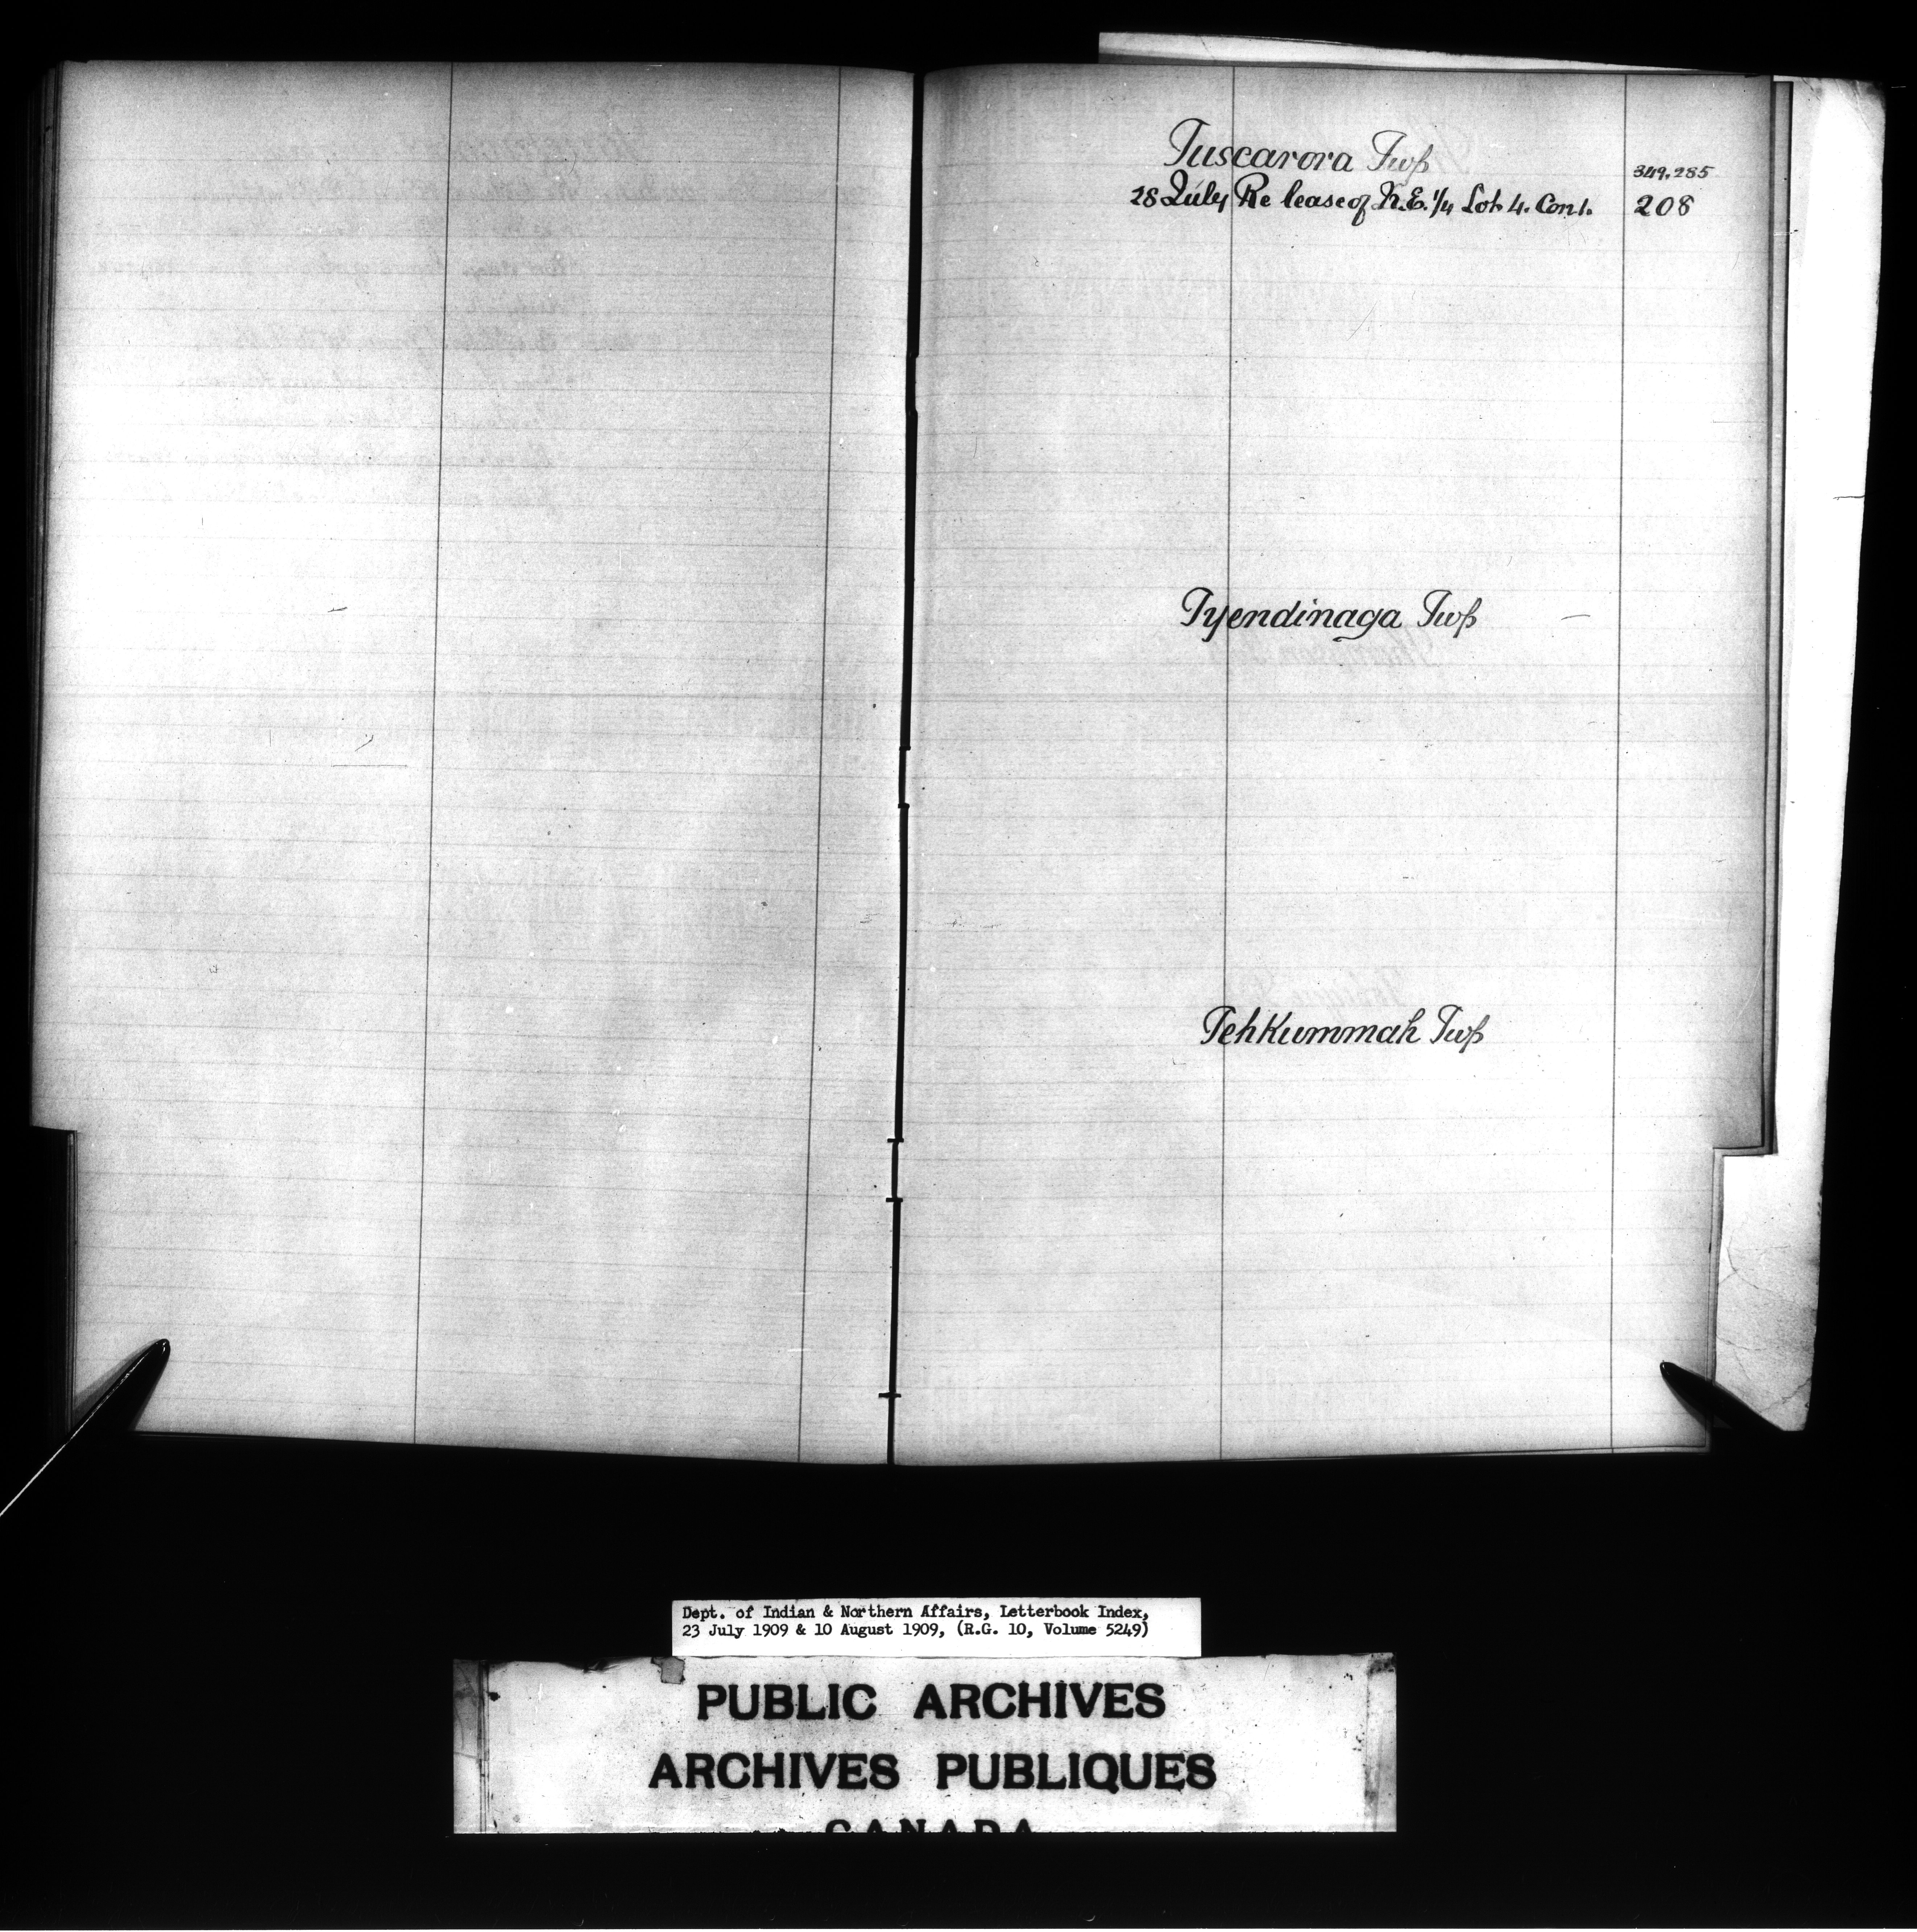 Tuscarora Twp
349,285
28 July Re lease of N.E. 1/4 Lot 4. Con 1. 208
Tyendinaga Twp
Tehkummah Twp
Dept. of Indian & Northern Affairs, Letterbook Index,
23 July 1909 & 10 August 1909, (R.G. 10, Volume 5249)
PUBLIC ARCHIVES
ARCHIVES PUBLIQUES
CANADA